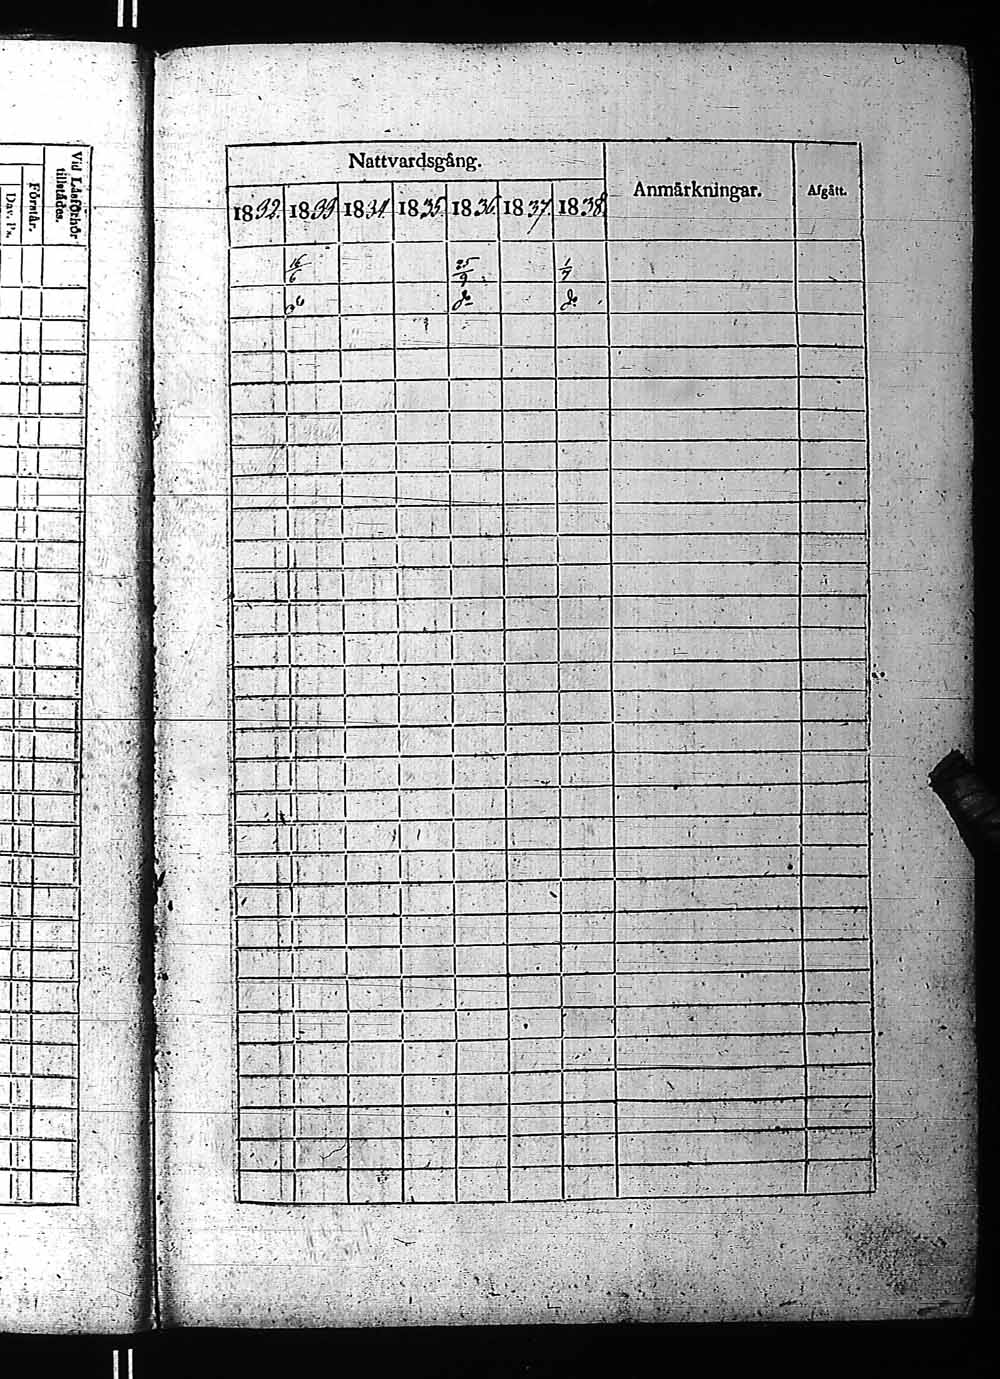 Vid Läsförhör
tillstädes.
Förstår.
Dav. Ps.
Nattvardsgång.
Anmärkningar. Afgått.
1832. 1833 1834 1835 1836 1837 1838
16/6 25/9 1/7
do do do